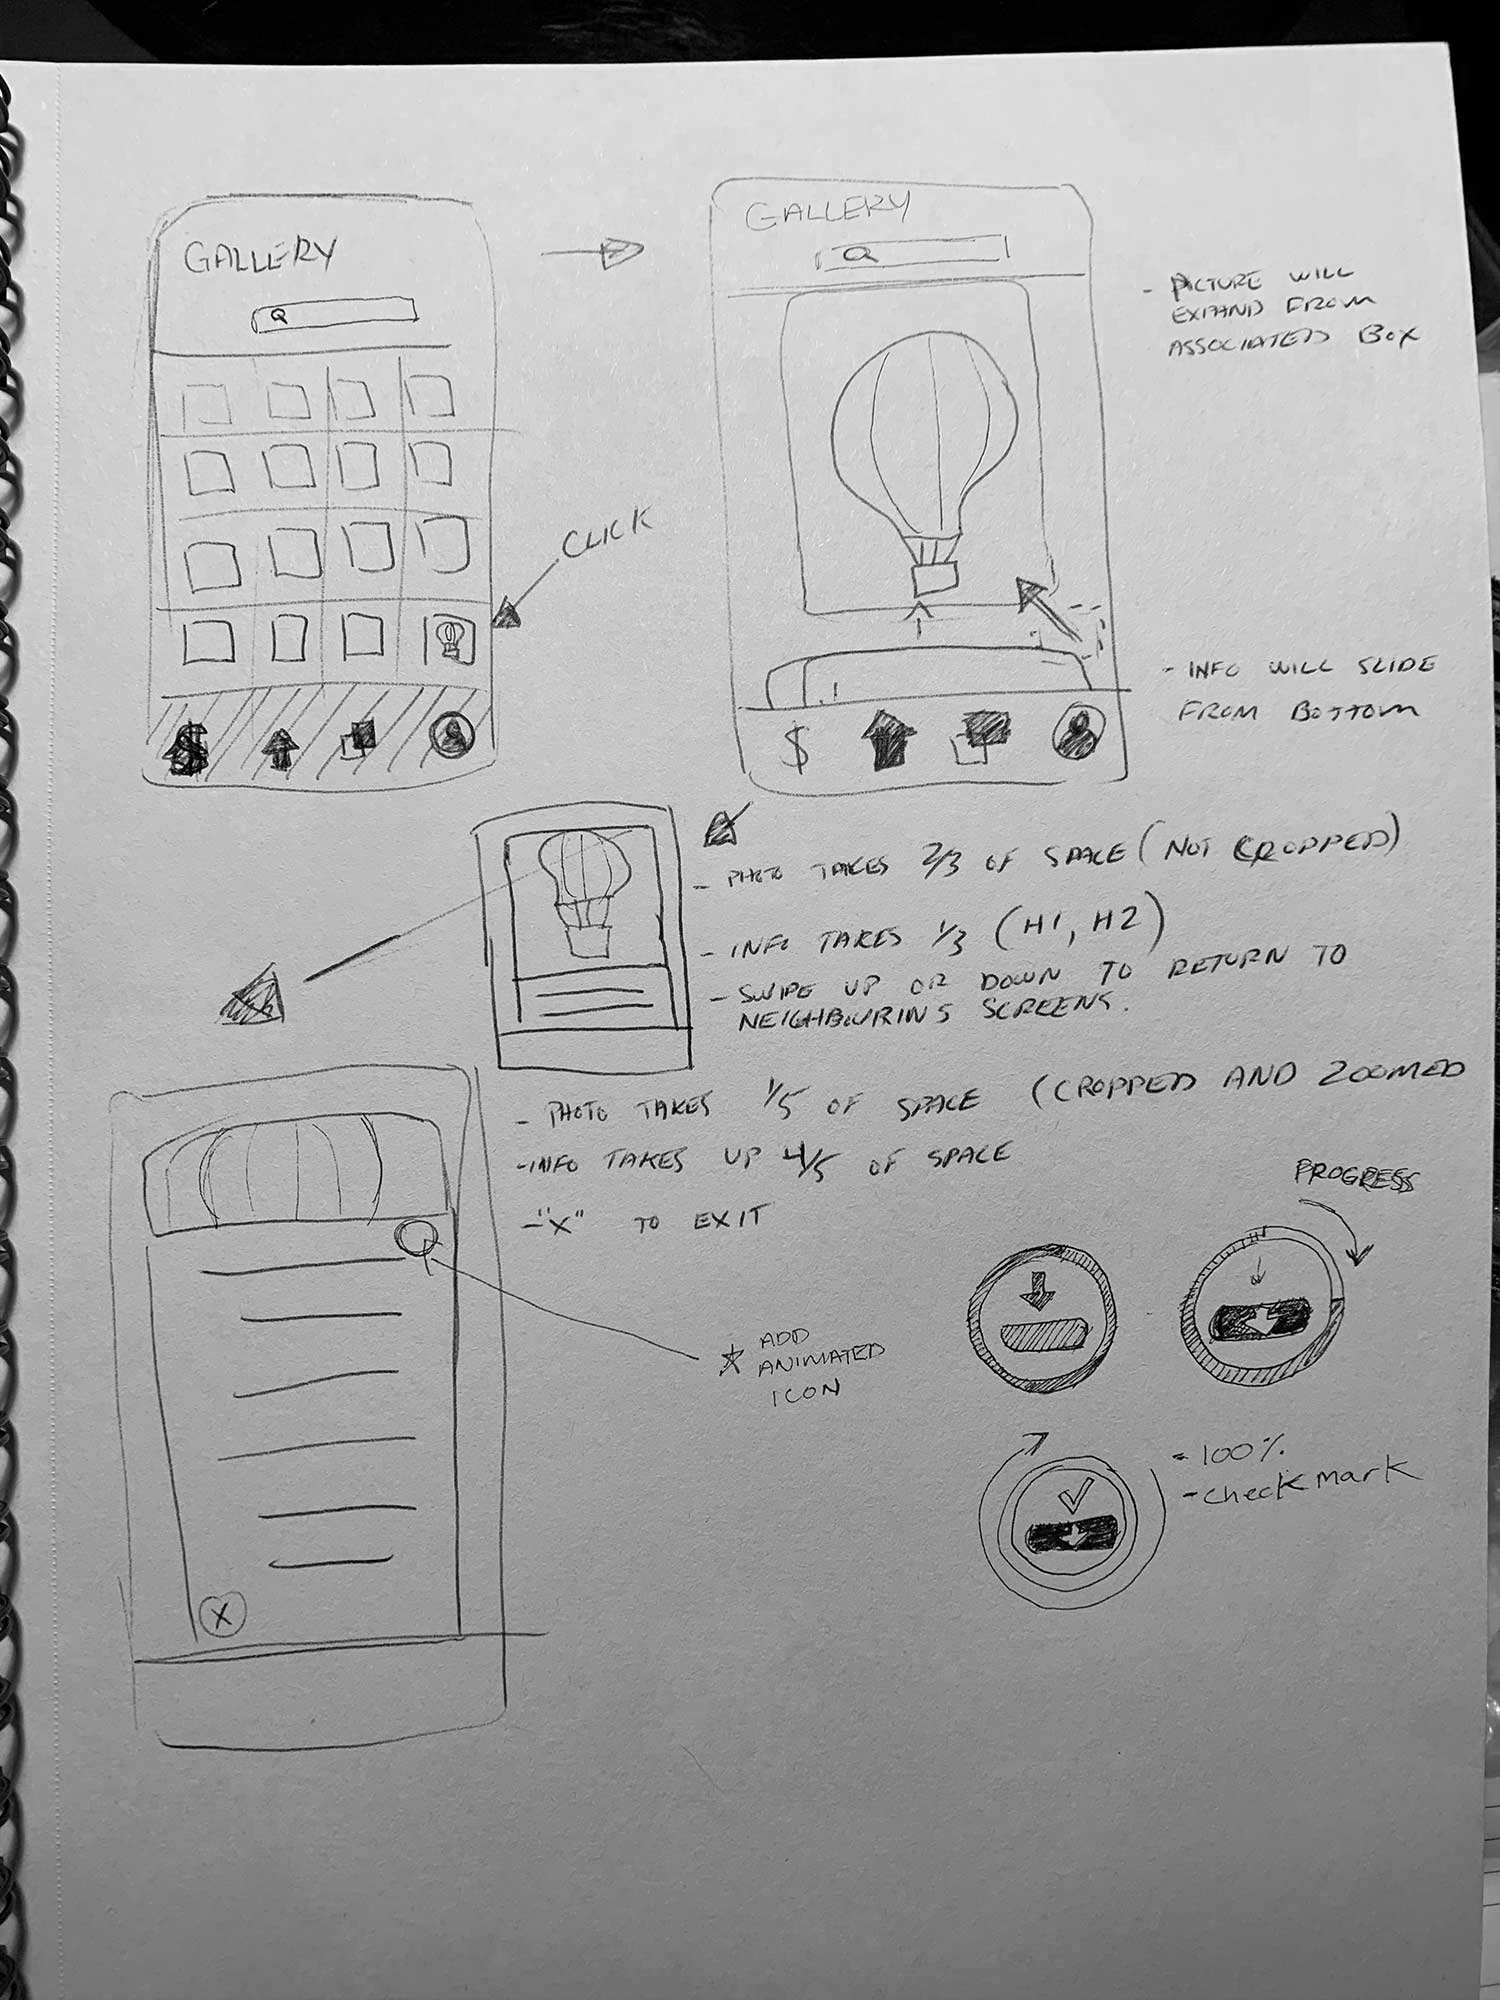 GALLERY
GALLERY
- PICTURE WILL
EXPAND FROM
ASSOCIATED BOX
CLICK
- INFO WILL SLIDE
FROM BOTTOM
$
$
- PHOTO TAKES 2/3 OF SPACE (NOT CROPPED)
- INFO TAKES 1/3 (H1, H2)
- SWIPE UP OR DOWN TO RETURN TO
NEIGHBOURING SCREENS.
- PHOTO TAKES 1/5 OF SPACE (CROPPED AND ZOOMED
- INFO TAKES UP 4/5 OF SPACE
- "X" TO EXIT
PROGRESS
ADD
ANIMATED
ICON
- 100%
- checkmark
X